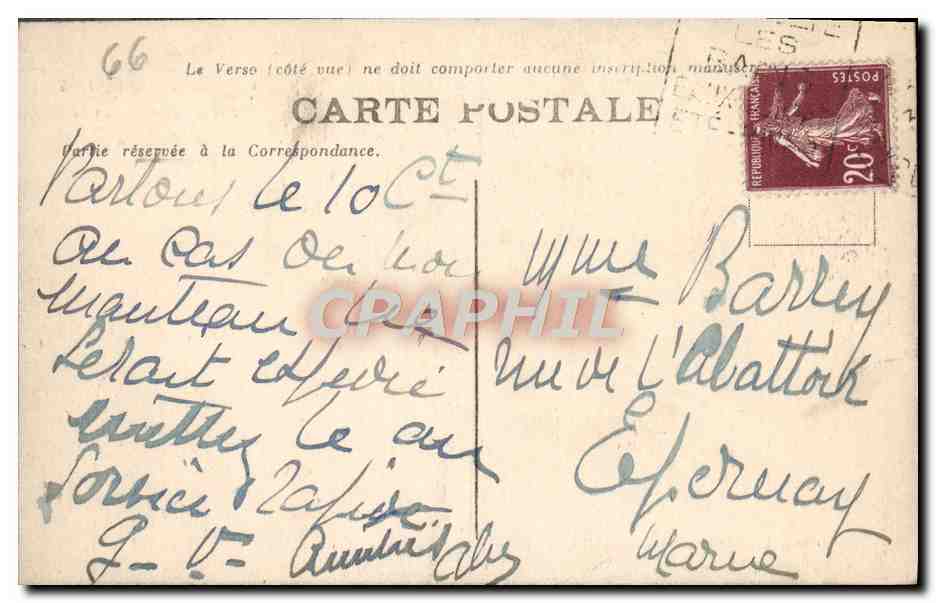 66
Le Verso (côté vue) ne doit comporter aucune inscription manuscrite
LES
CARTE POSTALE
REPUBLIQUE FRANÇAISE
POSTES
20c
Partie réservée à la Correspondance.
Partons le 10 Ct
au cas ou mon
manteau
serait expedié
mettez le au
Service
G-V-
Mme Barrey
rue de l'Abattoir
Epernay
Marne
CPARHIL